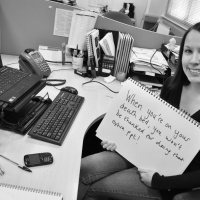 When you're on your
death bed, you won't
be thankful for doing that
extra ppl!